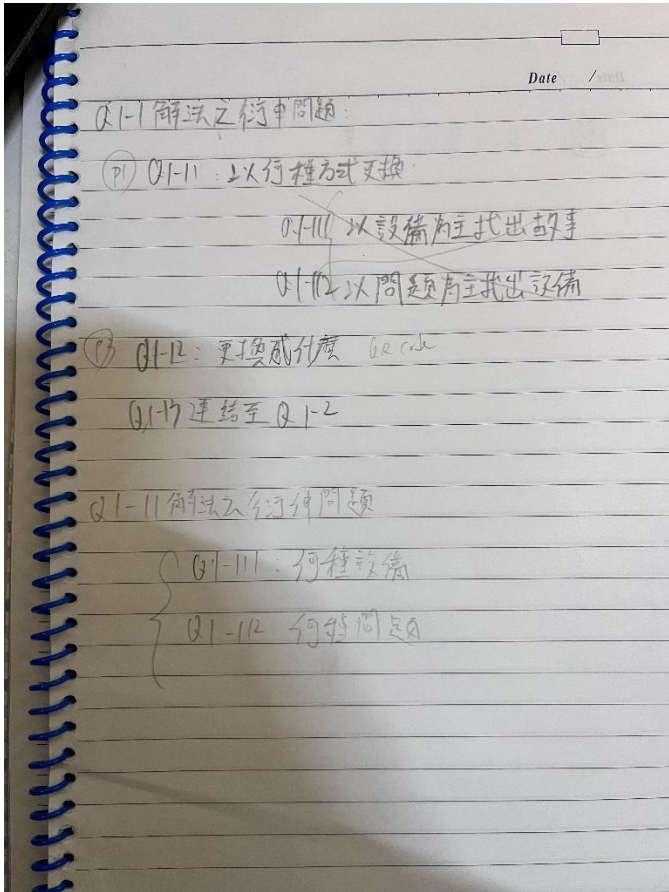 Date /
Q1-1解法之衍申問題:
P1 Q1-11:以何種方式更換
Q1-111 以設備為主找出故事
Q1-112 以問題為主找出設備
Q1-12:更換成什麼 QR code
Q1-13連結至Q1-2
Q1-11解法之衍伸問題
Q1-111:何種設備
Q1-112 何種問題